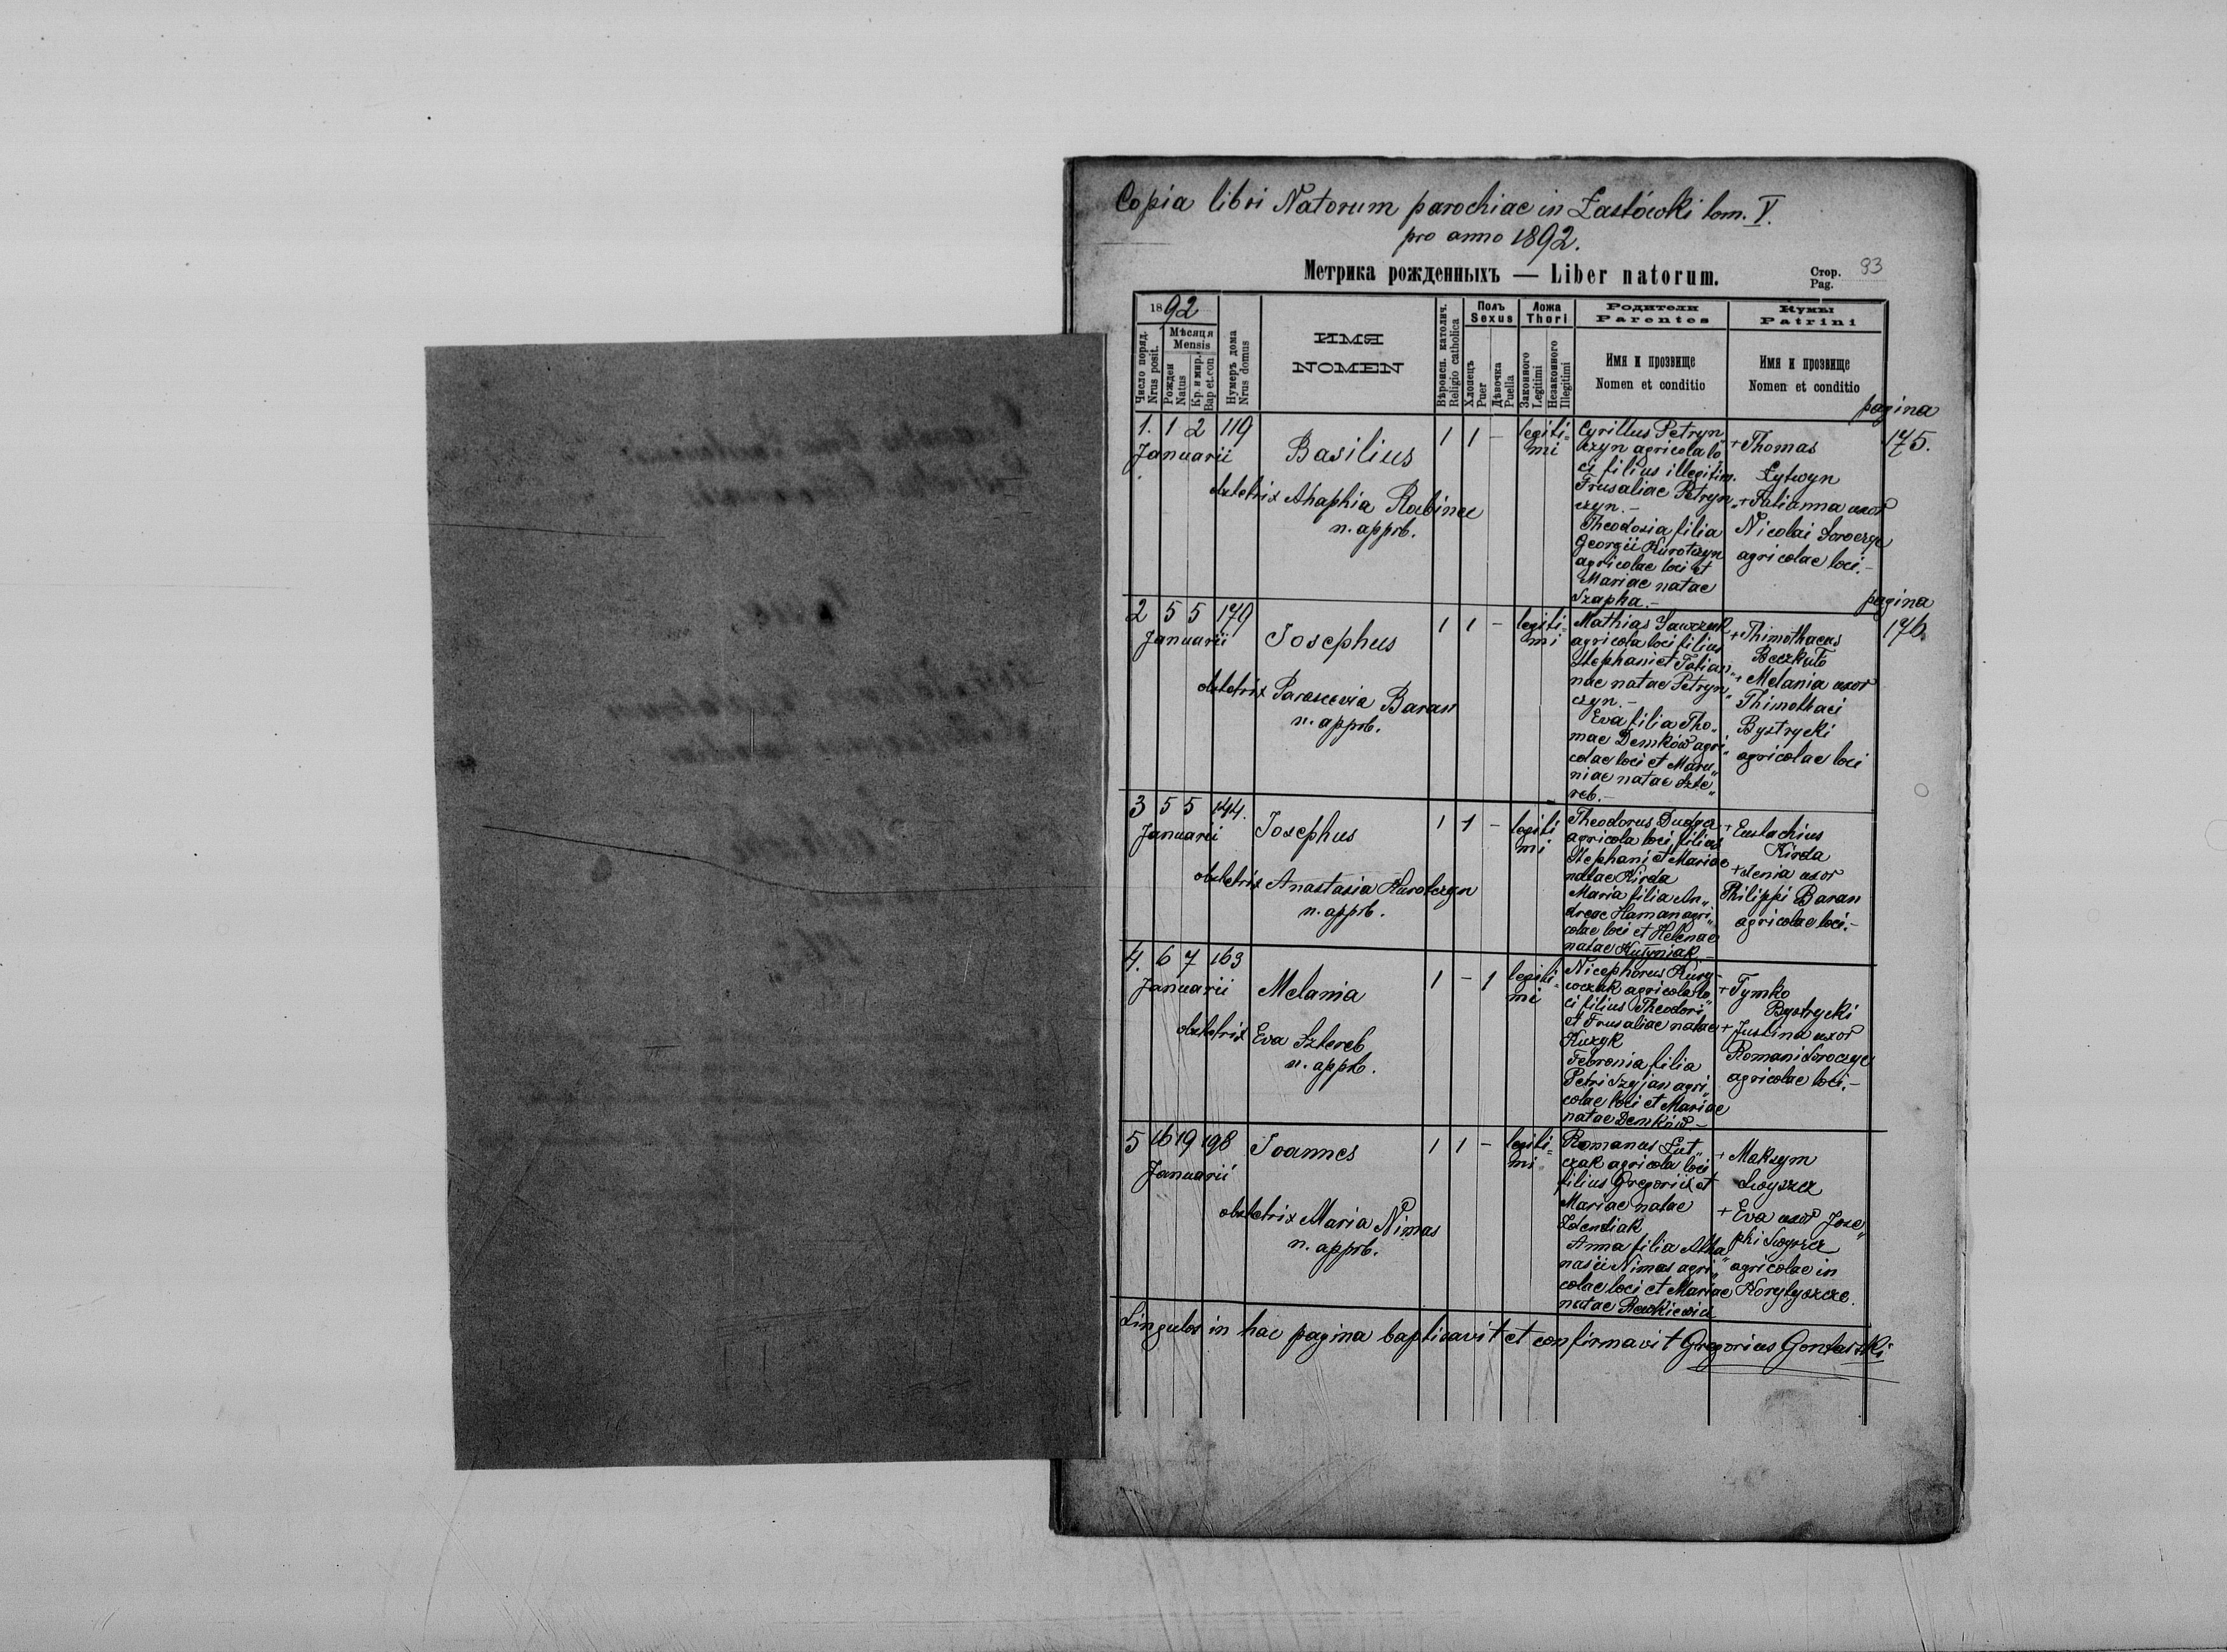 Copia libri Natorum parochiae in Zastówki tom. V.
pro anno 1892.
Метрика рожденныхъ — Liber natorum.
Стор. 93
Pag.
1892
Число поряд.
Nrus posit.
Мѣсяця
Mensis
Рожден
Natus
Кр. и мир.
Bap et.con
Нумеръ дома
Nrus domus
ИМЯ
NOMEN
Вѣроисп. католич.
Religio catholica
Полъ
Sexus
Хлопецъ
Puer
Дѣвочка
Puella
Ложа
Thori
Законного
Legitimi
Незаконного
Illegitimi
Родители
Parentes
Имя и прозвище
Nomen et conditio
Кумы
Patrini
Имя и прозвище
Nomen et conditio
pagina
175.
1. 1 2 119
Januarii
Basilius
obstetrix Ahaphia Rabinec
n. approb.
1 1 –
legiti=
mi
Cyrillus Petryn
czyn agricola lo"
ci filius illegitim.
Frusaliae Petryn"
czyn.–
Theodosia filia
Georgii Kurotczyn
agricolae loci et
Mariae natae
Szapka.–
+Thomas
Lytwyn
+Talianna uxor
Nicolai
agricolae loci.–
pagina
176.
2 5 5 179
Januarii
Josephus
obstetrix Parascevia Baran
n. approb.
1 1 –
legiti=
mi
Mathias Sawczuk
agricola loci filius
Stephani et Tatian"
nae natae Petryn"
czyn.–
Eva filia Tho"
mae Demków agri"
colae loci et Maru"
niae natae Szte"
reb.–
+Thimothaeus
+Melania uxor
Thimothaei
Bystrycki
agricolae loci
3 5 5 144.
Januarii
Josephus
obstetrix Anastasia Kurotczyn
n. approb.
1 1 –
legiti
mi
Theodorus Dudga
agricola loci filius
Stephani et Mariae
natae Kirda
Maria filia An"
dreae Haman agri"
colae loci et Helenae
natae
+Eustachius
Kirda
+Xenia uxor
Philippi Baran
agricolae loci.–
4. 6 7 163
Januarii
Melania
obstetrix Eva Sztereb
n. approb.
1 – 1
legiti=
mi
Nicephorus Kury-
wczak agricola lo"
ci filius Theodori
et Frusaliae natae
Kuzyk
Febronia filia
Petri Szyjan agri"
colae loci et Mariae
natae Demków.–
+Tymko
Bystrycki
+Justina uxor
Romani
agricolae loci.–
5 16 19 198
Januarii
Joannes
obstetrix Maria Nimas
n. approb.
1 1 –
legiti=
mi
Romanus Łut"
czak agricola loci
filius Gregorii et
Mariae natae
Anna filia Atha"
nasii Nimas agri"
colae loci et Mariae
natae
+Maksym
Swyszcz
+Eva uxor Jose"
phi Swyszcz
agricolae in
Korytyszcze.
Singulos in hac pagina baptisavit et confirmavit Gregorius